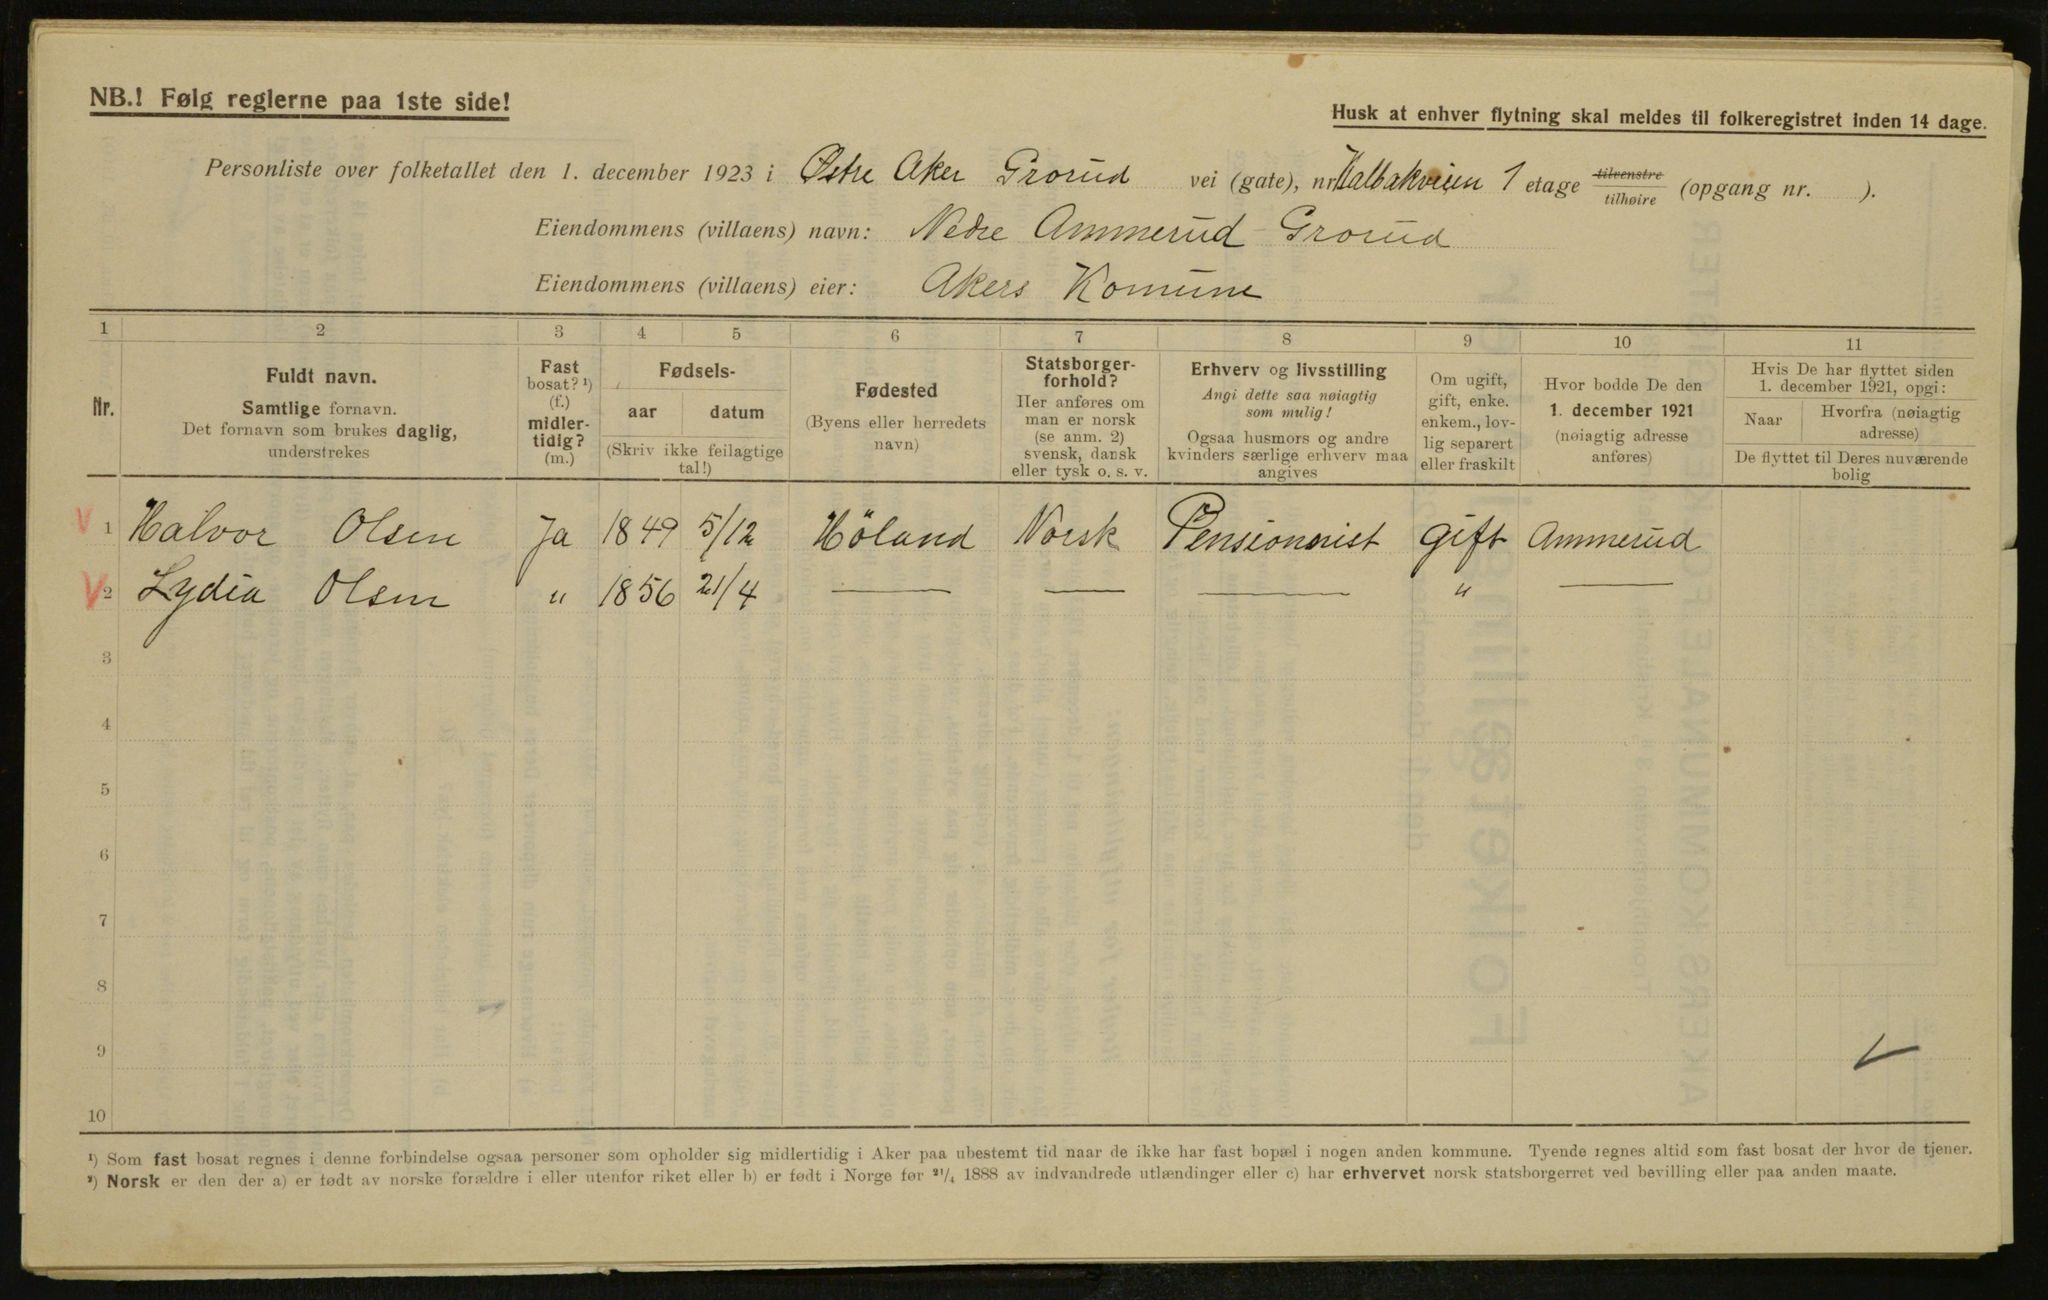 NB.! Følg reglerne paa 1ste side!
Husk at enhver flytning skal meldes til folkeregistret inden 14 dage.
Personliste over folketallet den 1. december 1923 i Østre Aker Grorud vei (gate), nr. Kalbakveien 1 etage tilvenstre tilhøire (opgang nr. ).
Eiendommens (villaens) navn: Nedre Ammerud Grorud
Eiendommens (villaens) eier: Akers Komune
1 2 3 4 5 6 7 8 9 10 11
Nr.
Fuldt navn.
Samtlige fornavn.
Det fornavn som brukes daglig,
understrekes
Fast
bosat? ¹)
(f.)
midler-
tidig?
(m.)
Fødsels-
aar datum
(Skriv ikke feilagtige
tal!)
Fødested
(Byens eller herredets
navn)
Statsborger-
forhold?
Her anføres om
man er norsk
(se anm. 2)
svensk, dansk
eller tysk o. s. v.
Erhverv og livsstilling
Angi dette saa nøiagtig
som mulig!
Ogsaa husmors og andre
kvinders særlige erhverv maa
angives
Om ugift,
gift, enke.
enkem., lov-
lig separert
eller fraskilt
Hvor bodde De den
1. december 1921
(nøiagtig adresse
anføres)
Hvis De har flyttet siden
1. december 1921, opgi:
Naar
Hvorfra (nøiagtig
adresse)
De flyttet til Deres nuværende
bolig
V 1 Halvor Olsen Ja 1849 5/12 Höland Norsk Pensionnist gift Ammerud
V 2 Lydia Olsen " 1856 21/4 — — — " —
3
4
5
6
7
8
9
10
¹) Som fast bosat regnes i denne forbindelse ogsaa personer som opholder sig midlertidig i Aker paa ubestemt tid naar de ikke har fast bopæl i nogen anden kommune. Tyende regnes altid som fast bosat der hvor de tjener.
²) Norsk er den der a) er født av norske forældre i eller utenfor riket eller b) er født i Norge før ²¹/₄ 1888 av indvandrede utlændinger eller c) har erhvervet norsk statsborgerret ved bevilling eller paa anden maate.